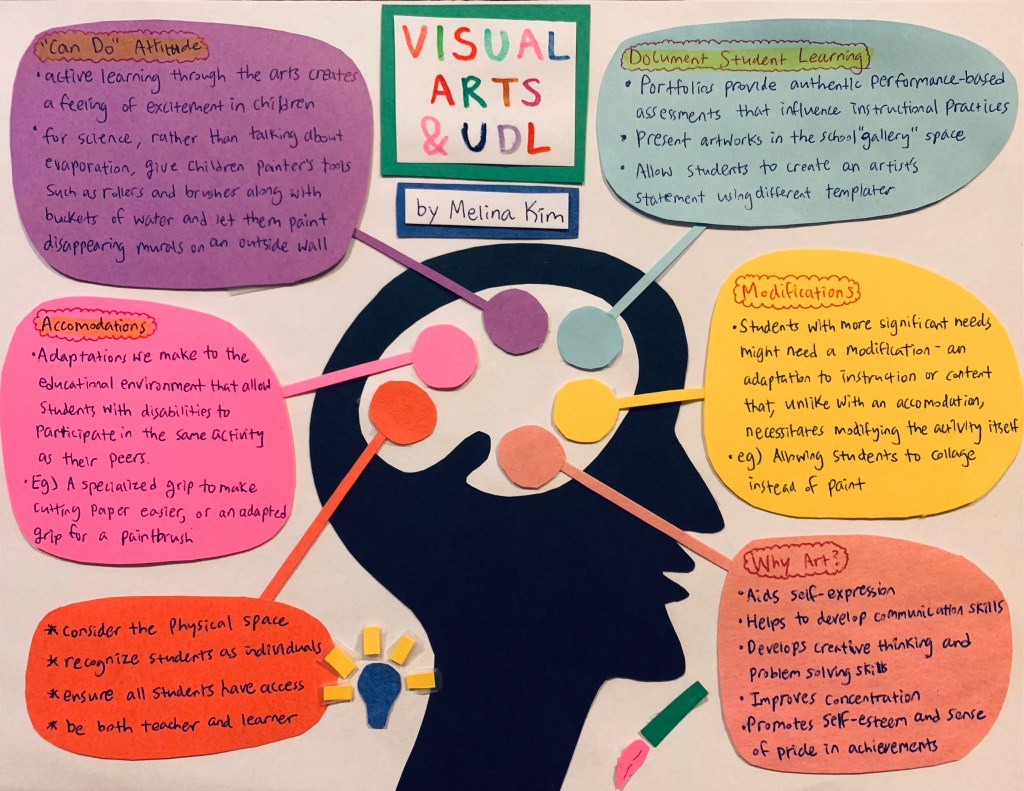 VISUAL
ARTS
& UDL
by Melina Kim
"Can Do" Attitude
• active learning through the arts creates
a feeling of excitement in children
• for science, rather than talking about
evaporation, give children painter's tools
such as rollers and brushes along with
buckets of water and let them paint
disappearing murals on an outside wall
Document Student Learning
• Portfolios provide authentic performance-based
assessments that influence instructional practices
• Present artworks in the school "gallery" space
• Allow students to create an artist's
statement using different templater
Accomodations
• Adaptations we make to the
educational environment that allow
students with disabilities to
participate in the same activity
as their peers.
• Eg) A specialized grip to make
cutting paper easier, or an adapted
grip for a paintbrush
Modifications
• Students with more significant needs
might need a modification - an
adaptation to instruction or content
that, unlike with an accomodation,
necessitates modifying the activity itself
• eg) Allowing students to collage
instead of paint
* consider the physical space
* recognize students as individuals
* ensure all students have access
* be both teacher and learner
Why Art?
• Aids self-expression
• Helps to develop communication skills
• Develops creative thinking and
problem solving skills
• Improves concentration
• Promotes self-esteem and sense
of pride in achievements